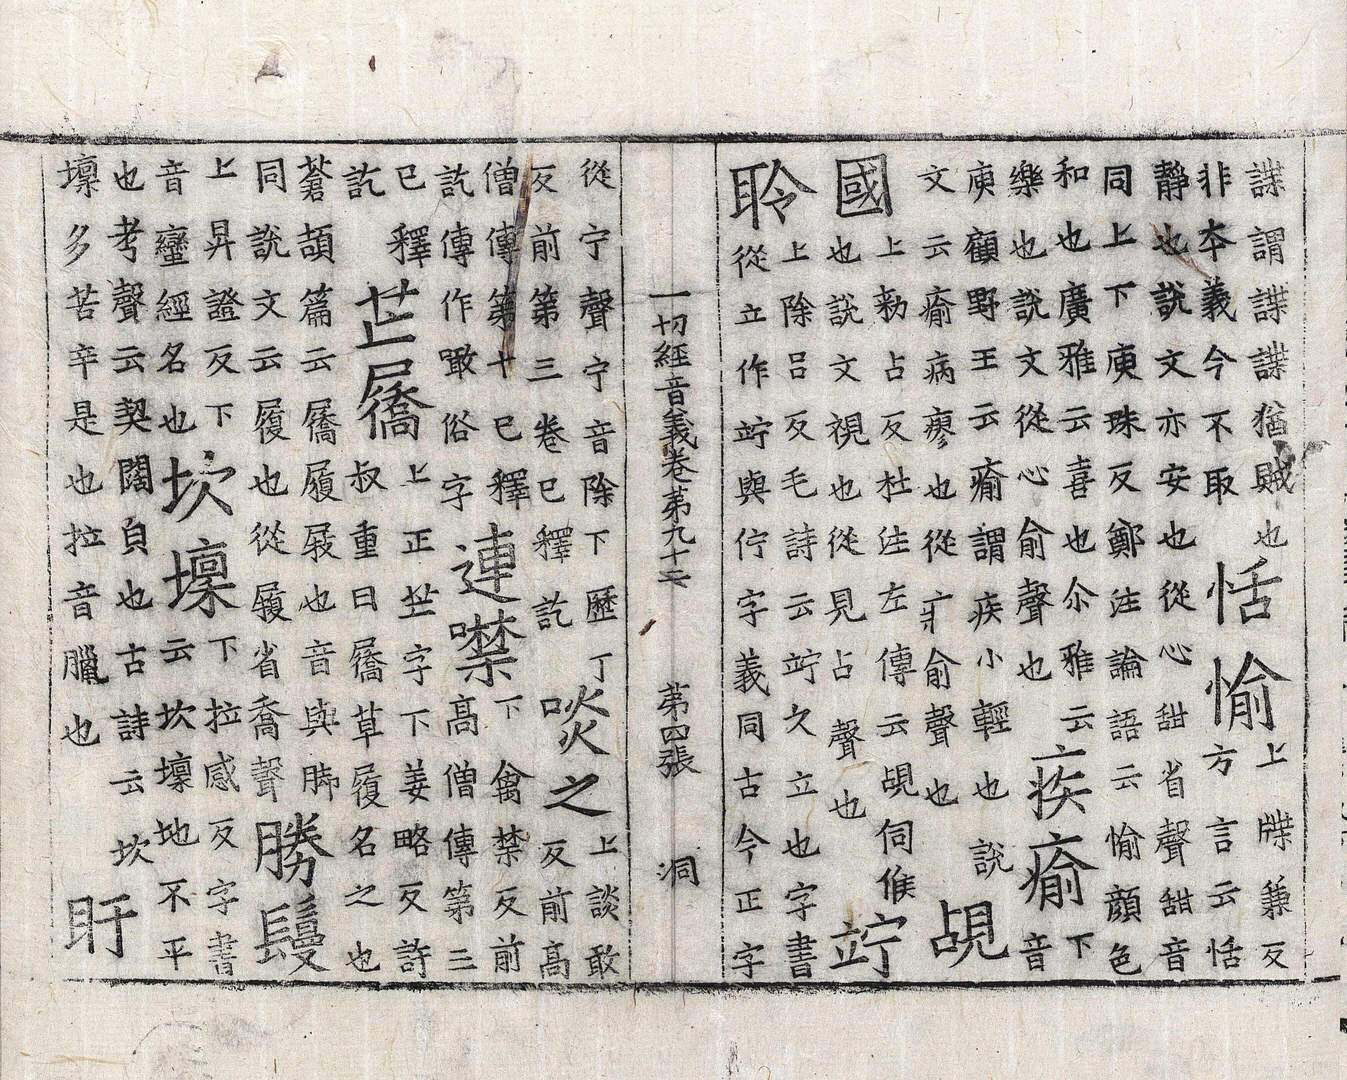 諜謂諜諜猶賊也
非本義今不取
恬愉
上牒蒹反
方言云恬
靜也說文亦安也從心甜省聲甜音
同上下庾珠反鄭注論語云愉顏色
和也廣雅云喜也尒雅云
樂也說文從心俞聲也
疾瘉
下
音
庾顧野王云瘉謂疾小輕也說
文云瘉病瘳也從疒俞聲也
覘
國
上勑占反杜注左傳云覘伺候
也說文視也從見占聲也
竚
聆
上除呂反毛詩云竚久立也字書
從立作竚與佇字義同古今正字
一切經音義卷第九十五 第四張 洞
從宁聲宁音除下歷丁
反前第三卷已釋訖
啖之
上談敢
反前高
僧傳第十已釋
訖傳作噉俗字
連噤
下禽禁反前
高僧傳第三
已釋
訖
芷屩
上正芷字下姜略反許
叔重曰屩草履名之也
蒼頡篇云屩履屐也音與脚
同說文云履也從履省喬聲
勝鬘
上昇證反下
音蠻經名也
坎壈
下拉感反字書
云坎壈地不平
也考聲云契闊自也古詩云坎
壈多苦辛是也拉音臘也
盱